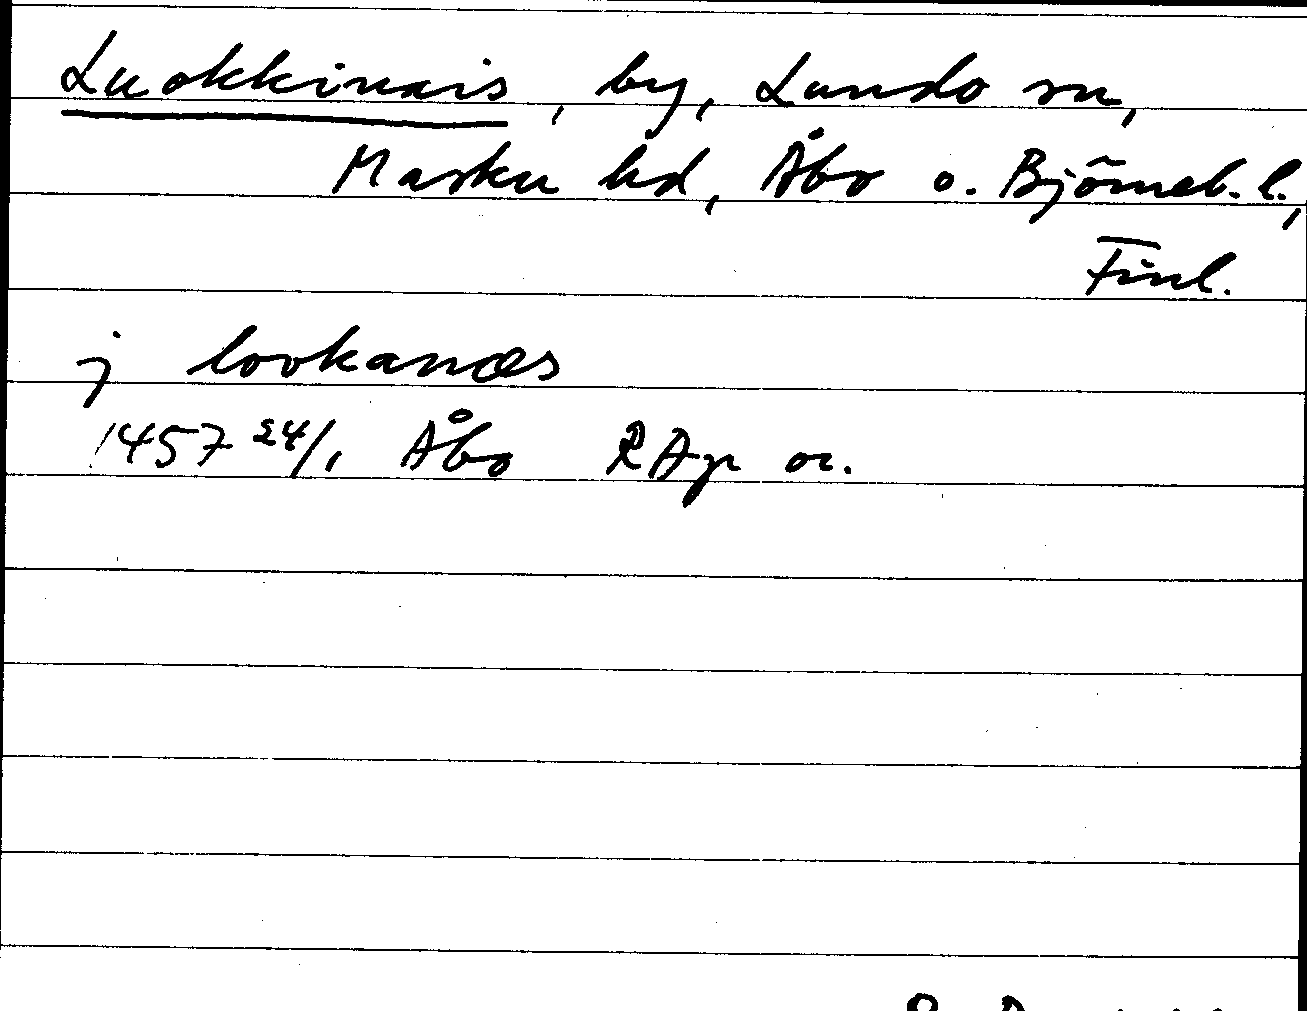 Luokkinais, by, Lundo sn,
Masku hd, Åbo o. Björneb. l.,
Finl.
j lookanæs
1457 24/1 Åbo RAp or.